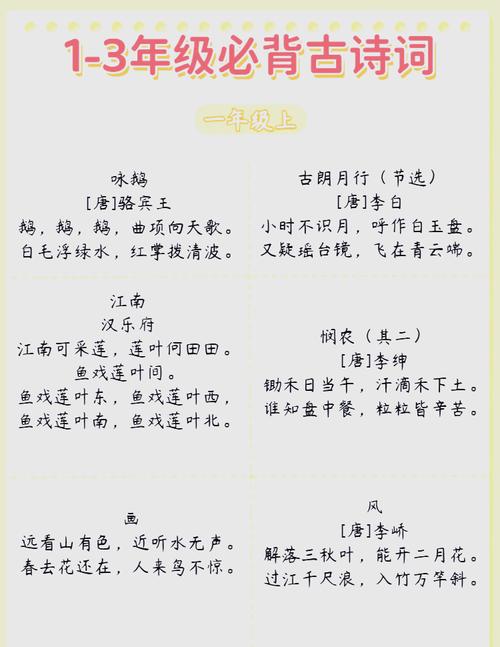 1-3年级必背古诗词
一年级上
咏鹅
[唐]骆宾王
鹅，鹅，鹅，曲项向天歌。
白毛浮绿水，红掌拨清波。
古朗月行（节选）
[唐]李白
小时不识月，呼作白玉盘。
又疑瑶台镜，飞在青云端。
江南
汉乐府
江南可采莲，莲叶何田田。
鱼戏莲叶间。
鱼戏莲叶东，鱼戏莲叶西，
鱼戏莲叶南，鱼戏莲叶北。
悯农（其二）
[唐]李绅
锄禾日当午，汗滴禾下土。
谁知盘中餐，粒粒皆辛苦。
画
远看山有色，近听水无声。
春去花还在，人来鸟不惊。
风
[唐]李峤
解落三秋叶，能开二月花。
过江千尺浪，入竹万竿斜。